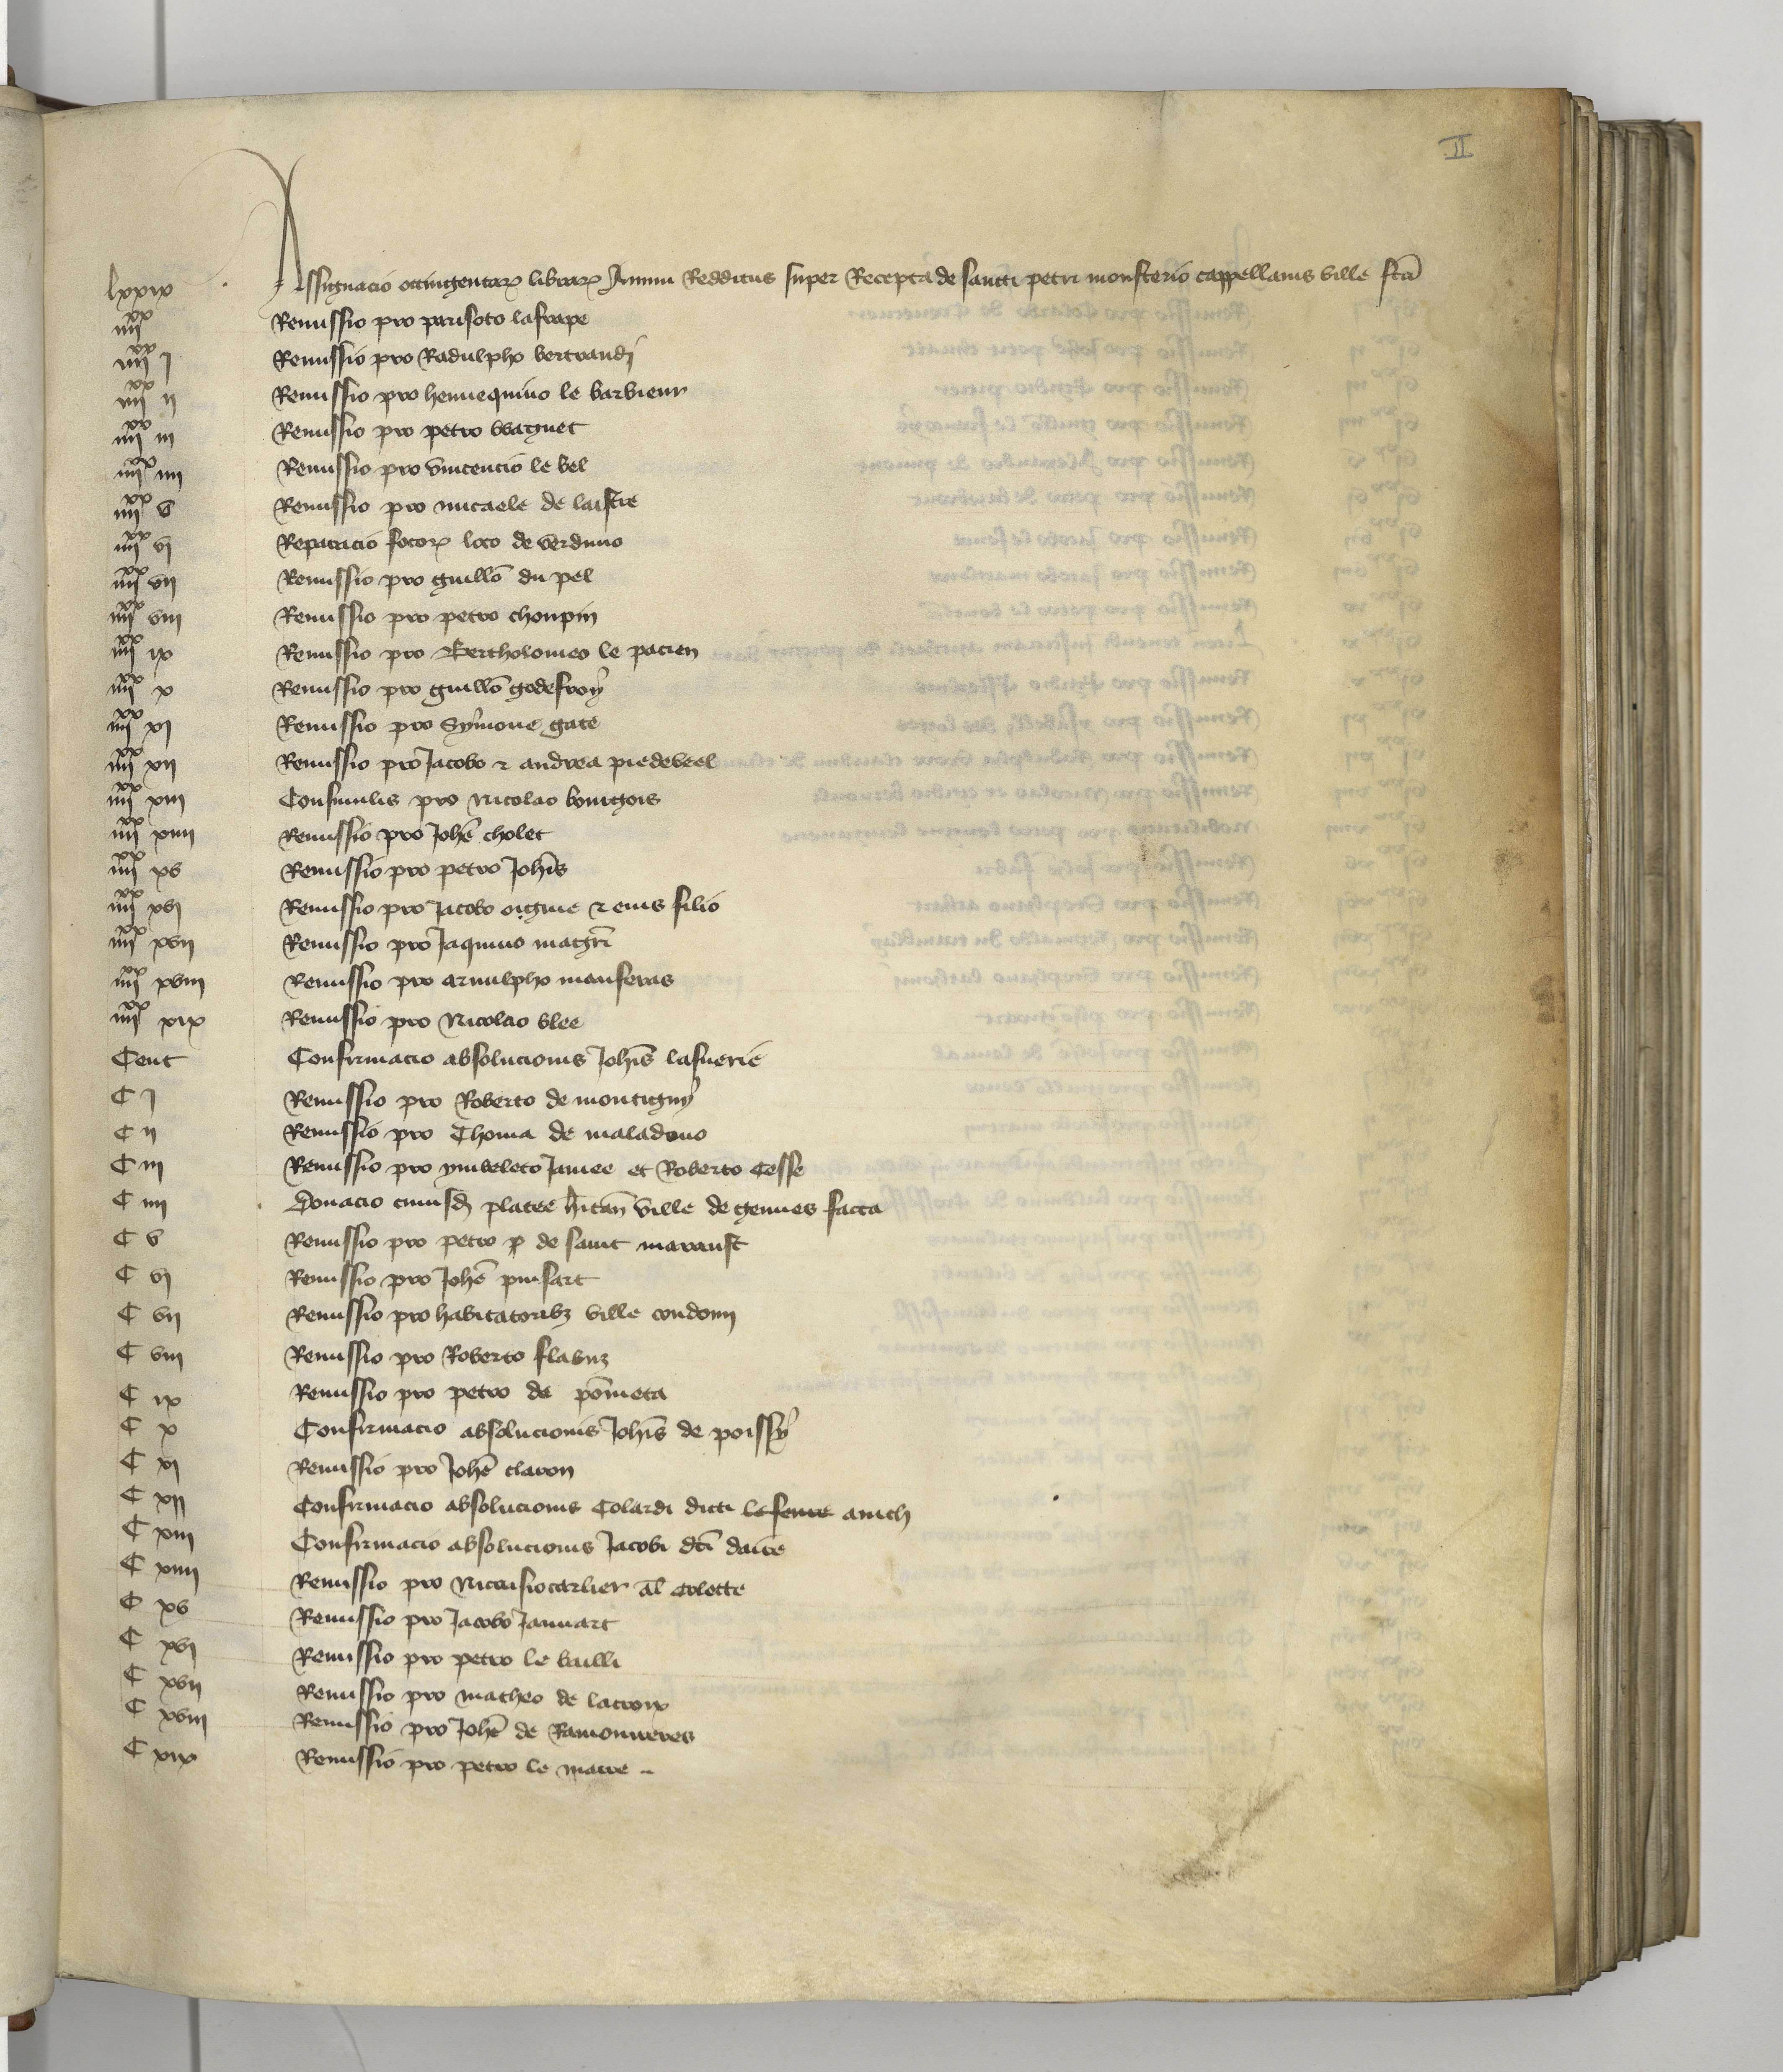 II
lxxix Assignacio octingentarꝝ librarꝝ Annui Redditus super Recepta de sancti petri monsterio cappellanis ville fca
iiiixx Remissio pro parisoto lafrape
iiiixx j Remissio pro Radulpho bertrandi
iiiixx ii Remissio pro hennequino le barbieur
iiiixx iii Remissio pro petro waguet
iiiixx iiii Remissio pro vincencio le bel
iiiixx v Remissio pro micaele de laistre
iiiixx vj Reparacio focorꝝ loco de verduno
iiiixx vii Remissio pro guillo du pel
iiiixx viii Remissio pro petro choupin
iiiixx ix Remissio pro Bertholomeo le pacien
iiiixx x Remissio pro guillo godeffroy
iiiixx xj Remissio pro Symone gate
iiiixx xii Remissio pro Jacobo ⁊ andrea piedeveel
iiiixx xiii Consimilis pro Nicolao bourgois
iiiixx xiiii Remissio pro Johe cholet
iiiixx xv Remissio pro petro Johis
iiiixx xvj Remissio pro Jacobo oigine ⁊ eius filio
iiiixx xvii Remissio pro Jaquino magri
iiiixx xviii Remissio pro arnulpho manseras
iiiixx xix Remissio pro Nicolao blee
Cent Confirmacio absolucionis Johis lasnerie
C j Remissio pro Roberto de montigny
C ii Remissio pro Thoma de maladomo
C iii Remissio pro ymbeleto Jamee et Roberto Cesse
C iiii Donacio cuiusd platee hitan ville de gennes facta
C v Remissio pro petro p de saint maranst
C vj Remissio pro Johe puisart
C vii Remissio pro habitatoribꝫ ville condomii
C viii Remissio pro Roberto flabuꝫ
C ix Remissio pro petro de pometa
C x Confirmacio absolucionis Johis de poissy
C xj Remissio pro Johe claron
C xii Confirmacio absolucionis Colardi dicti lesenne amich
C xiii Confirmacio absolucionis Jacobi dci daire
C xiiii Remissio pro Nicasio carlier al colette
C xv Remissio pro Jacobo Januart
C xvj Remissio pro petro le bailli
C xvii Remissio pro matheo de lacroix
C xviii Remissio pro Johe de Ramonneres
C xix Remissio pro petro le maire